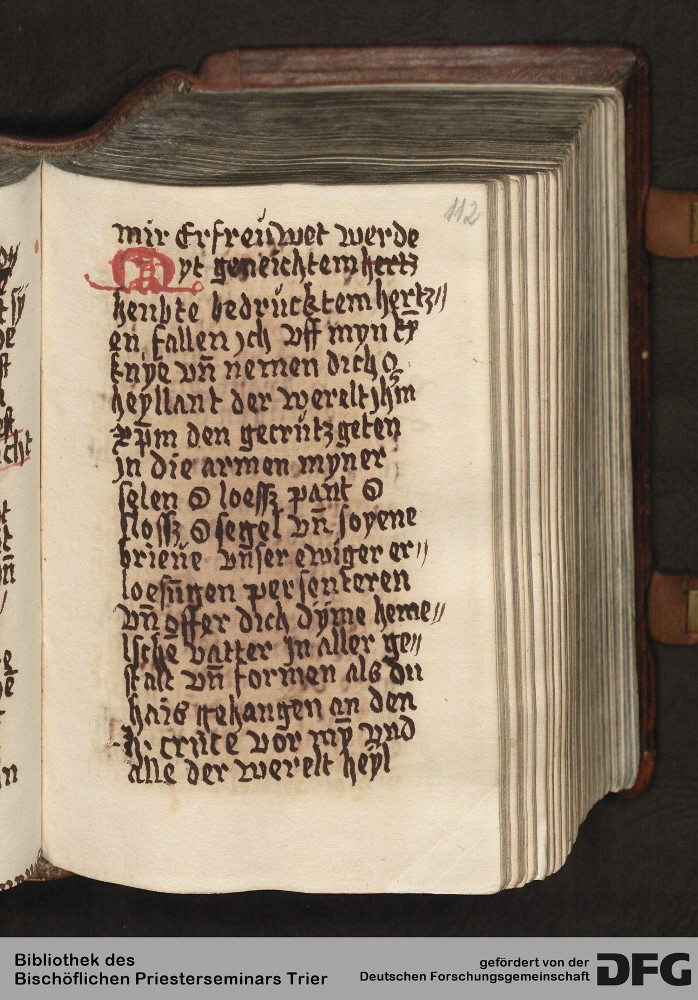 112
mir Erfreüwet werde
Myt geneichtem hertz
heubte bedrücktem hertz〃
en fallen jch vff myn
knye vn̄ nemen dich
heÿllant der werelt jhm̄
xp̄m den gecrütz geten
jn die armen myner
selen O loeſſz pant O
sloſſz O segel vn̄ soyene
brieue vnser ewiger er〃
loesūgen persenteren
vn̄ offer dich dyme heme〃
lsche vatter jn aller ge〃
stalt vn̄ formen als du
hais gehangen an den
h. cruce vor my vnd
alle der werelt heÿl
Bibliothek des
Bischöflichen Priesterseminars Trier
gefördert von der
Deutschen Forschungsgemeinschaft
DFG